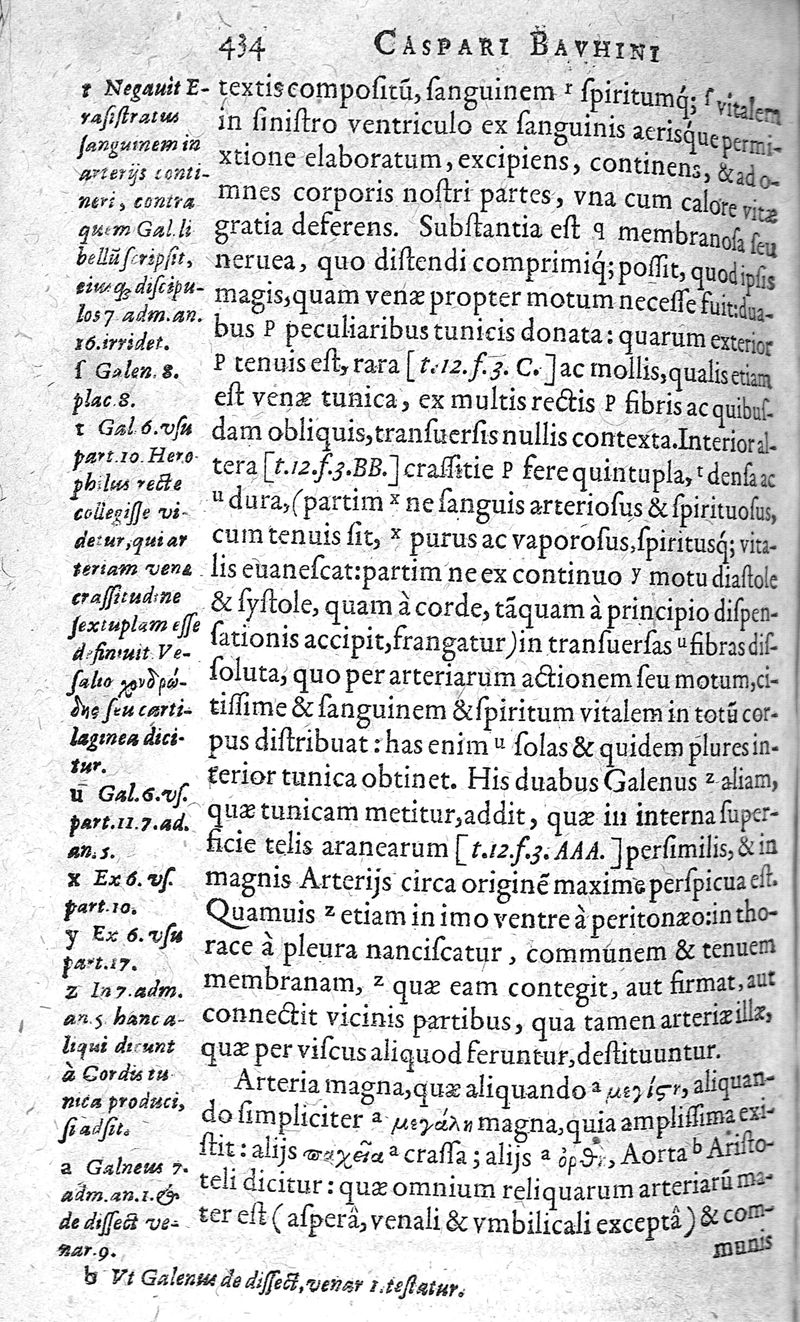 434 CASPARI BAVHINI
textis compoſitũ, ſanguinem r ſpiritumq́; ſ vitalem
in ſiniſtro ventriculo ex ſanguinis aerisq́ue permi-
xtione elaboratum, excipiens, continens, & ad o-
mnes corporis noſtri partes, vna cum calore vitæ
gratia deferens. Subſtantia eſt q membranoſa ſeu
neruea, quo diſtendi comprimiq́; poſſit, quod ipſis
magis, quam venæ propter motum neceſſe fuit: dua-
bus p peculiaribus tunicis donata: quarum exterior
p tenuis eſt, rara [t.12.f.3. C.] ac mollis, qualis etiam
eſt venæ tunica, ex multis rectis p fibris ac quibuſ-
dam obliquis, tranſuerſis nullis contexta. Interior al-
tera [t.12.f.3.BB.] craſſitie p fere quintupla, t denſa ac
u dura, (partim x ne ſanguis arterioſus & ſpirituoſus,
cum tenuis ſit, x purus ac vaporoſus, ſpiritusq́; vita-
lis euaneſcat: partim ne ex continuo y motu diaſtole
& ſyſtole, quam à corde, tãquam à principio diſpen-
ſationis accipit, frangatur) in tranſuerſas u fibras diſ-
ſoluta, quo per arteriarum actionem ſeu motum, ci-
tiſſime & ſanguinem & ſpiritum vitalem in totũ cor-
pus diſtribuat: has enim u ſolas & quidem plures in-
terior tunica obtinet. His duabus Galenus z aliam,
quæ tunicam metitur, addit, quæ in interna ſuper-
ficie telis aranearum [t.12.f.3. AAA.] perſimilis, & in
magnis Arterijs circa originẽ maxime perſpicua eſt.
Quamuis z etiam in imo ventre à peritonæo: in tho-
race à pleura nanciſcatur, communem & tenuem
membranam, z quæ eam contegit, aut firmat, aut
connectit vicinis partibus, qua tamen arteriæ illæ,
quæ per viſcus aliquod feruntur, deſtituuntur.
Arteria magna, quæ aliquando a μεγίςη, aliquan-
do ſimpliciter a μεγάλη magna, quia ampliſſima exi-
ſtit: alijs παχεῖα a craſſa; alijs a ὀρθὴ, Aorta b Ariſto-
teli dicitur: quæ omnium reliquarum arteriarũ ma-
ter eſt (aſperâ, venali & vmbilicali exceptâ) & com-
munis
r Negauit E-
raſiſtratus
ſanguinem in
arterijs conti-
neri, contra
quem Gal. li
bellũ ſcripſit,
eiusq́; diſcipu-
los 7 adm. an.
16. irridet.
ſ Galen. 8.
plac. 8.
t Gal. 6. vſu
part. 10. Hero
philus recte
collegiſſe vi-
detur, qui ar
teriam vena
craſſitudine
ſextuplam eſſe
definiuit. Ve-
ſalio χονδρώ-
δης ſeu carti-
laginea dici-
tur.
u Gal. 6. vſ.
part. 11. 7. ad.
an. 5.
x Ex 6. vſ.
part. 10.
y Ex 6. vſu
part. 17.
z In 7. adm.
an. 5. hanc a-
liqui dicunt
à Cordis tu
nica produci,
ſi adſit.
a Galneus 7.
adm. an. 1. &
de diſſect ve-
nar. 9.
b Vt Galenus de diſſect, venar 1. teſtatur.